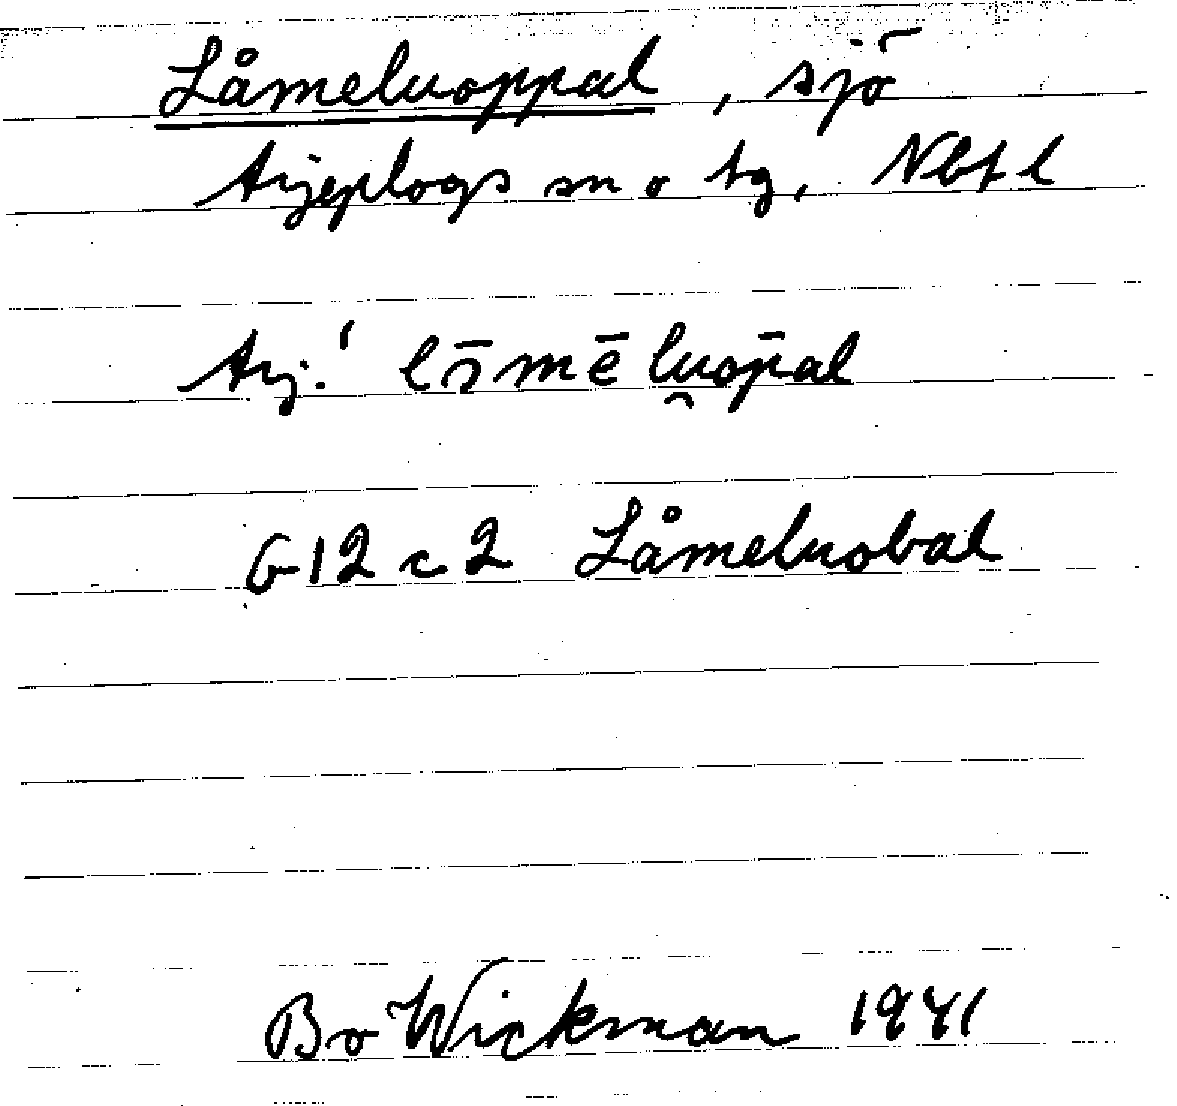 Låmeluoppal, sjö
Arjeplogs sn o tg, Nbtl
Arj.! lɔ̄mē lu̯op̄al
G12 c 2 Låmeluobal
Bo Wickman 1941